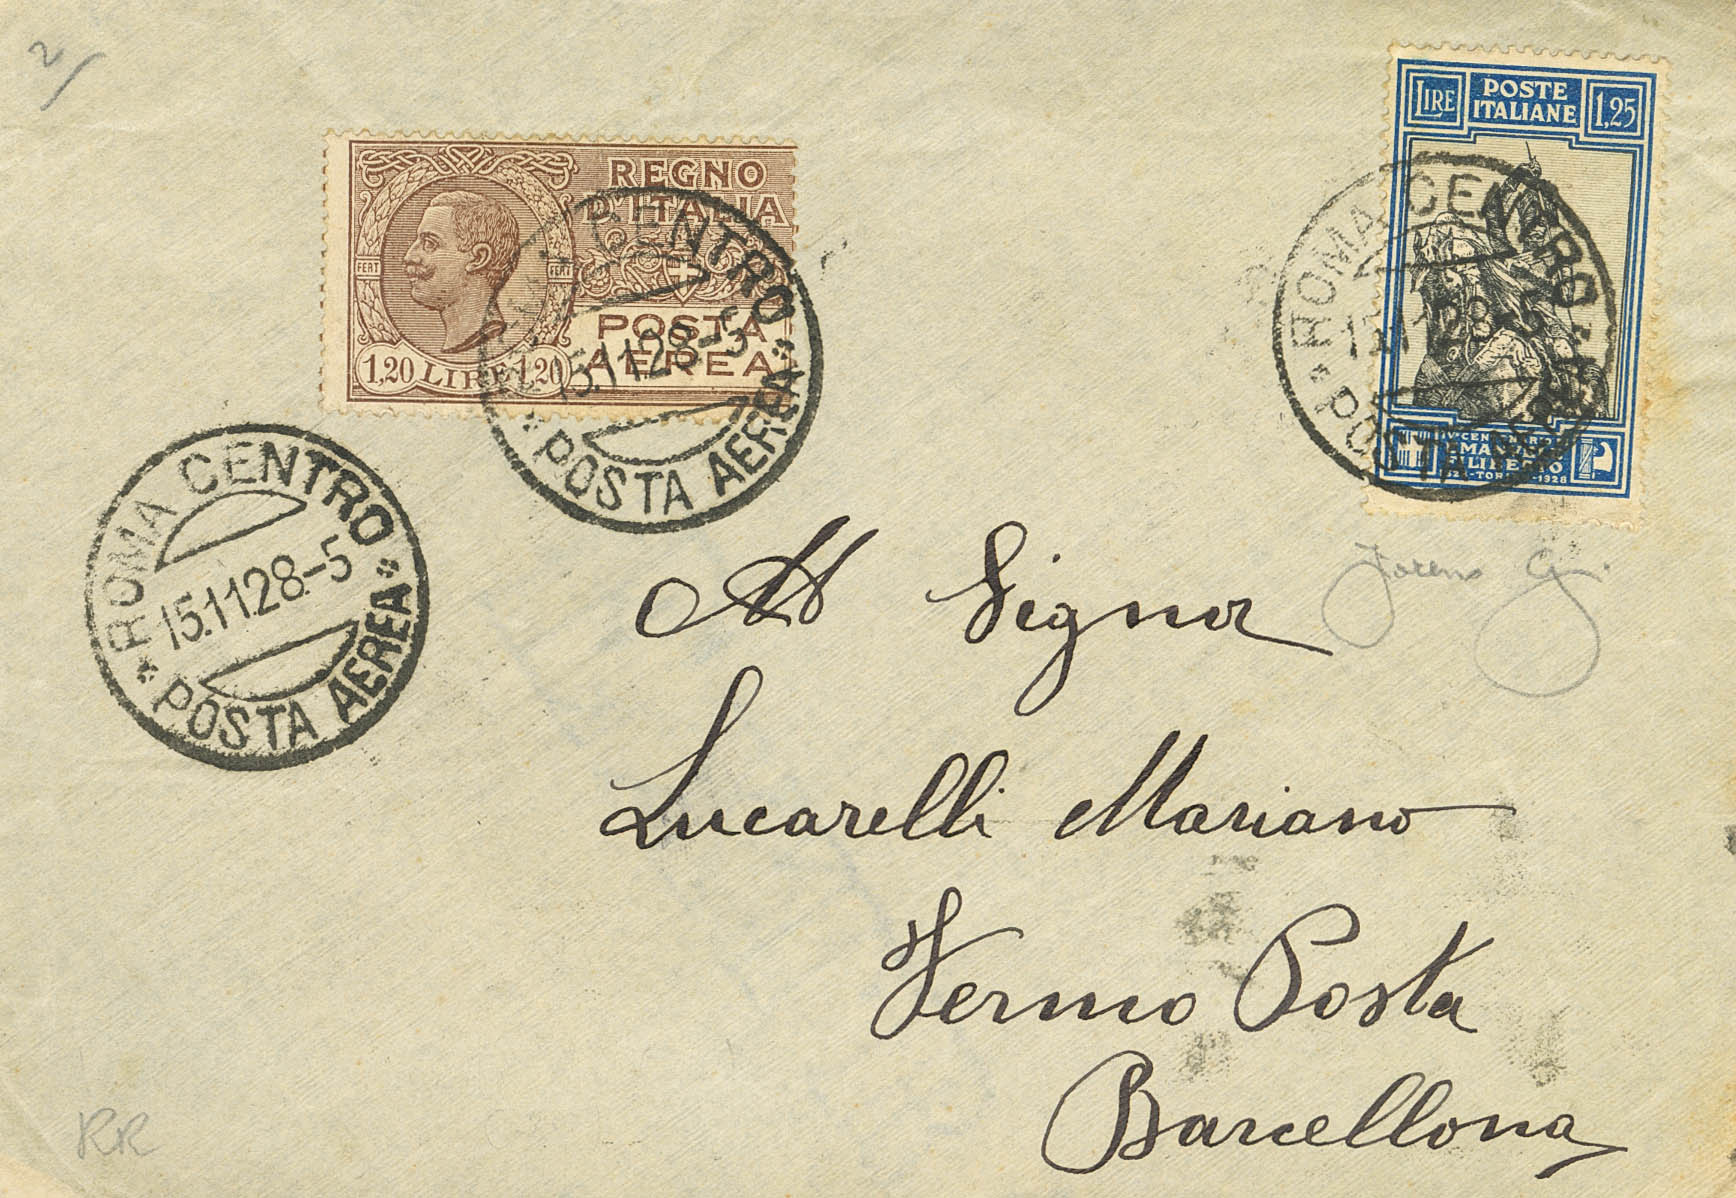 2/
REGNO
D'ITALIA
FERT FERT
POSTA
AEREA
1,20 LIRE 1,20
LIRE POSTE ITALIANE 1,25
IV CENTENARIO
EMANUELE
FILIBERTO
1528-TORINO-1928
ROMA CENTRO
15.11.28.-5
* POSTA AEREA *
ROMA CENTRO
15.11.28-5
* POSTA AEREA *
ROMA CENTRO
POSTA AEREA
All Signor
Lucarelli Mariano
Fermo Posta
Barcellona
RR